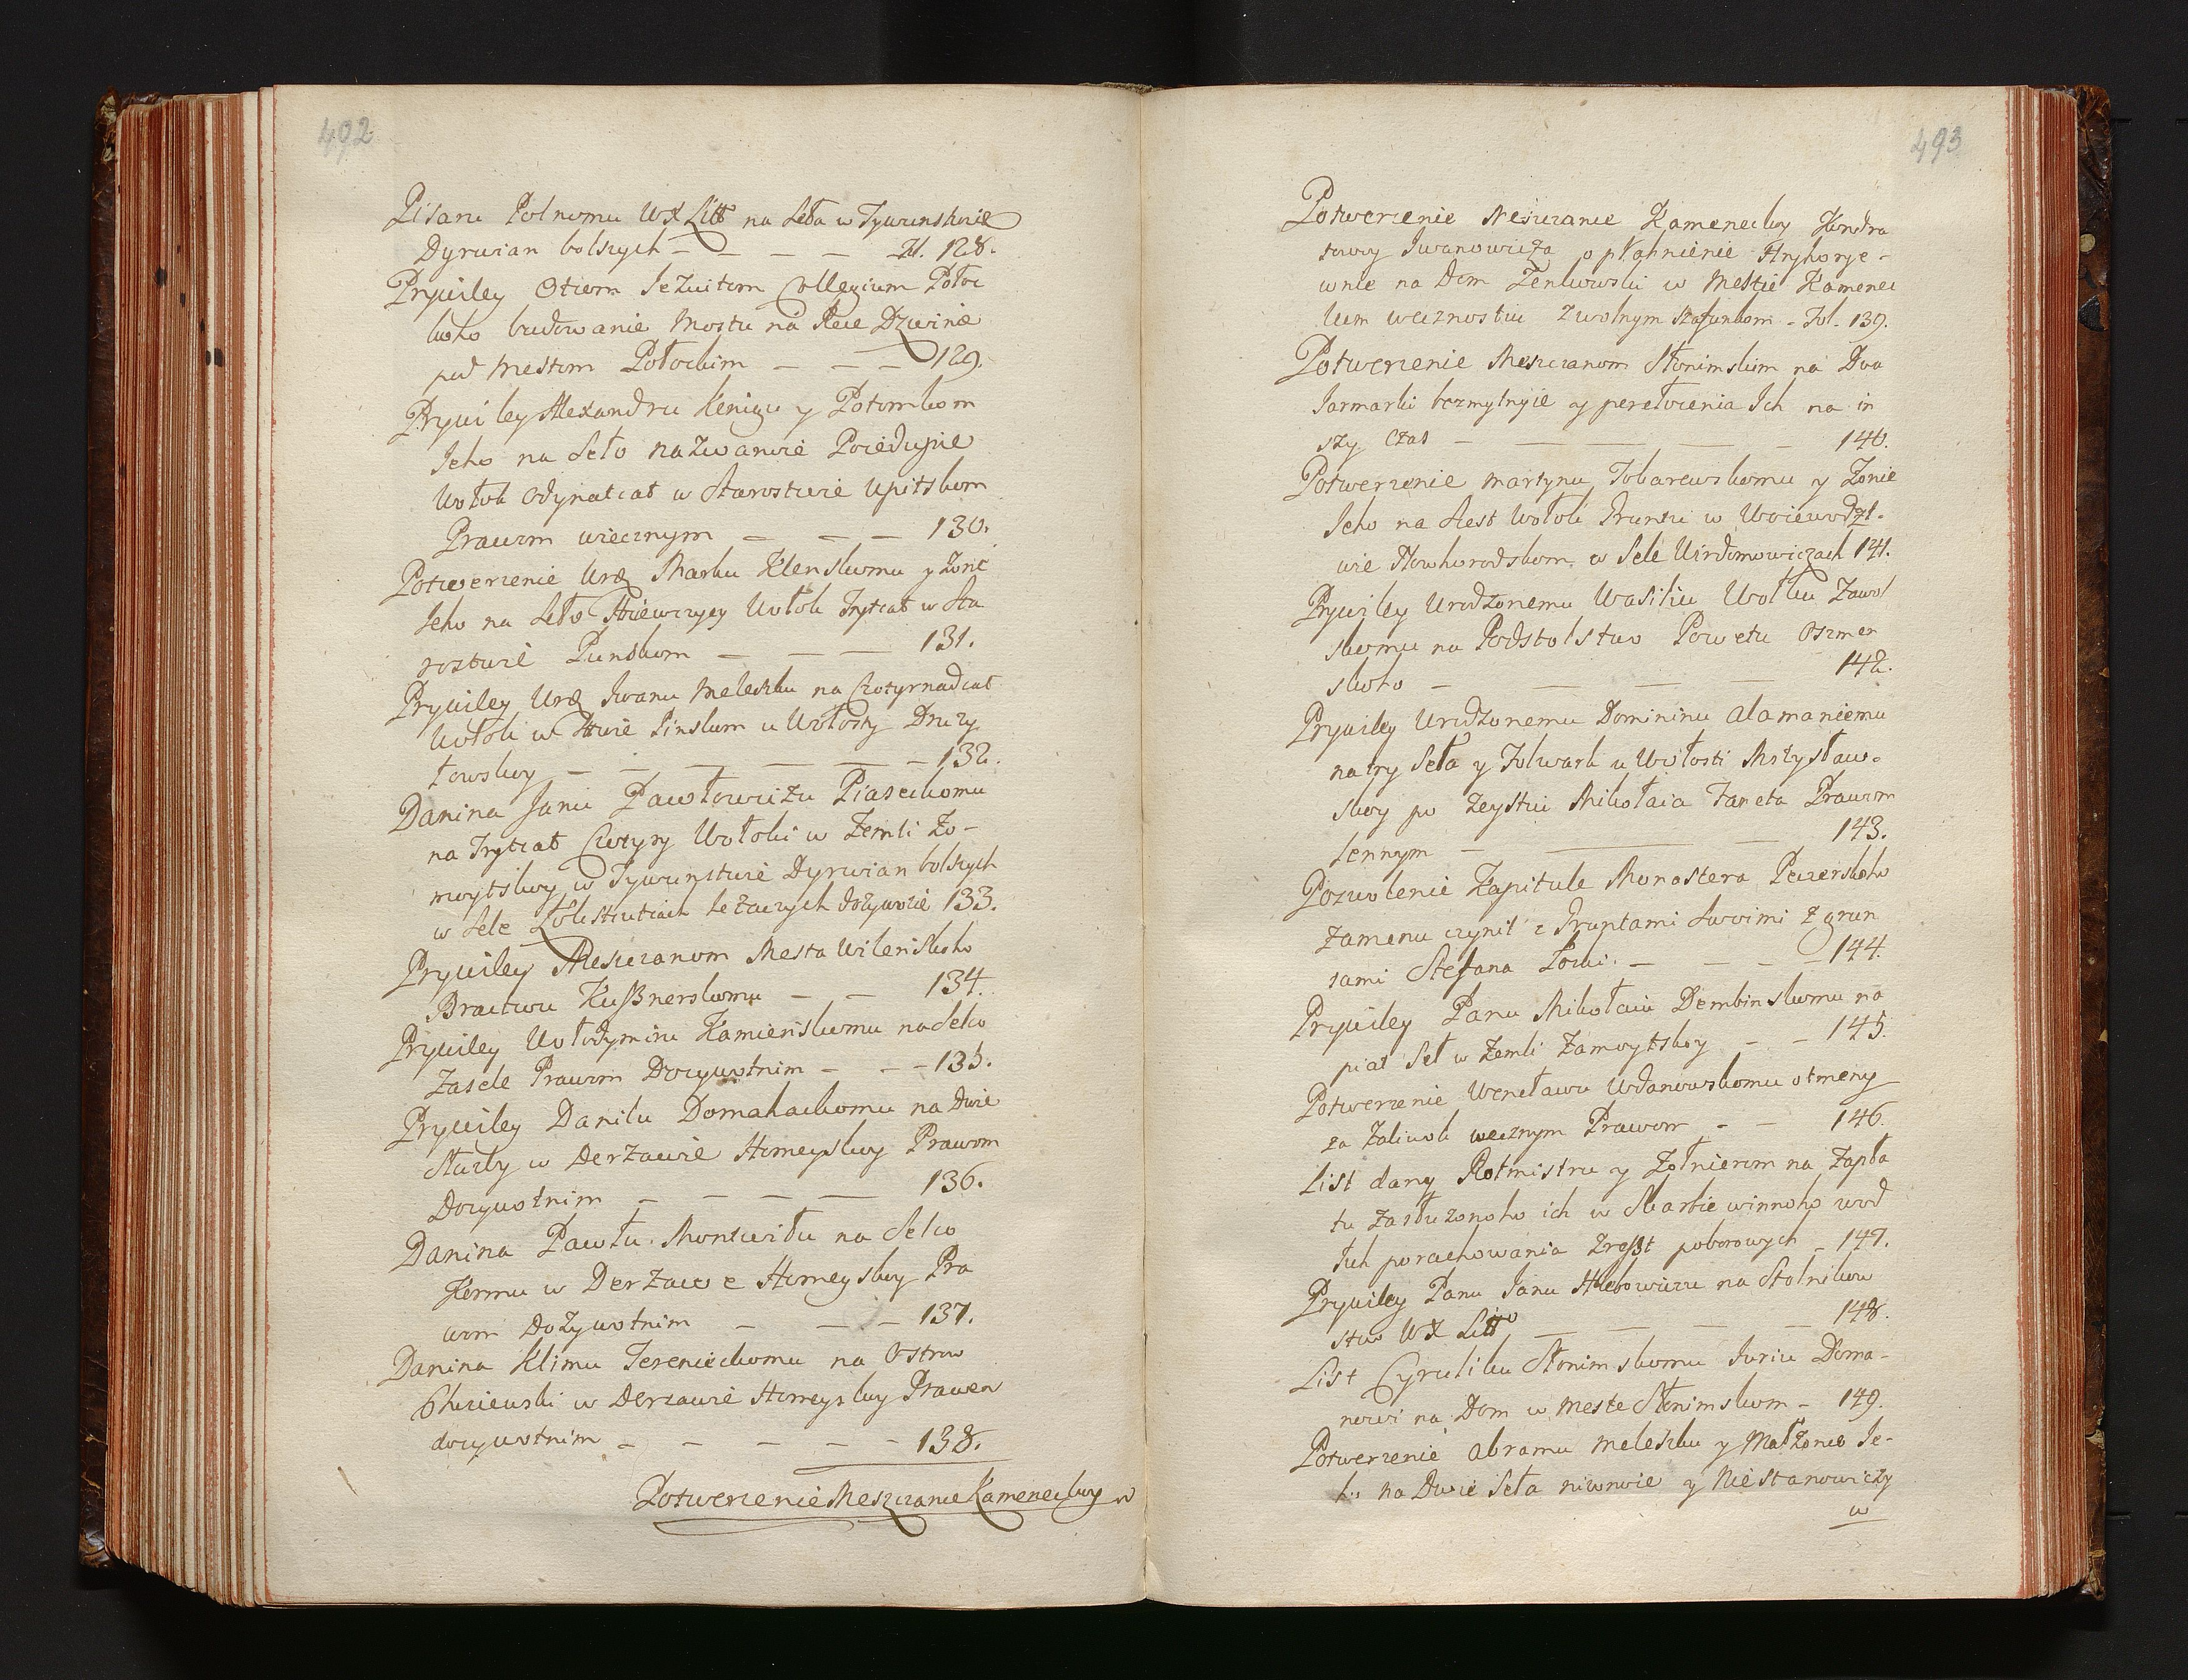 492
Pisaru Polnomu WX Litt na Seła w Tywunstwie
Dyrwian bolszych - - - - Fol. 128.
Prywiley Otcom Jezuitom Collegium Połoc
koho budowanie Mostu na Rece Dzwinie
pod Mestom Połockim - - - 129.
Prywiley Alexandru Kenigu y Potomkom
Jeho na Seło nazwanoie
Wołok Odynatcat w Starostwie Upitskom
Prawom wiecznym - - - 130.
Potwerzenie Urę Marku Klenskomu y Żonie
Jeho na Seło Wołok Trytcat w Sta
rostwie Punskom - - - 131.
Prywiley Urę Iwanu Meleszku na Czotyrnadcat
Wołok w Stwie Pinskom u Wołosty Druży
łowskoy - - - - - - 132.
Danina Janu Pawłowiczu Piaseckomu
na Trytcat Czotyry Wołoki w Zemli Żo-
moytskoy w Tywunstwie Dyrwian bolszych
w Sele leżaczych dożywotie 133.
Prywiley Meszczanom Mesta Wilenskoho
Bractwu Kuβnerskomu - - 134.
Prywiley Wołodymiru Kamienskomu na Selco
Zasele Prawom Dożywotnim - - - 135.
Prywiley Danilu Domahackomu na Dwie
Służby w Derżawie Homeyskoy Prawom
Dożywotnim - - - - 136.
Danina Pawłu Monswiłu na Selco
Hermu w Derżawe Homeyskoy Pra
wom Dożywotnim - - - 137.
Danina Klimu Tereniechomu na Ostrow
w Derżawie Homeyskoy Prawem
dożywotnim - - - - - 138.
Potwerzenie Meszczanie Kameneckoy
493
Potwerzenie Meszczanie Kameneckoy Hendra
sowoy Iwanowicża Ahryhorye-
wnie na Dom Zenkowski w Mestie Kamenec
kom wecznostiu z wolnym szafunkom - Fol. 139.
Potwerzenie Meszczanom Słonimskim na Dwa
Jarmarki bezmytnyie y perełożenia Ich na in
szy Czas - - - 140.
Potwerzenie Martynu Tokarewskomu y Żonie
Jeho na Szest Wołok Hruntu w Woiewodzt-
wie Nowhorodskom, w Sele Wirdomowiczach 141.
Prywiley Urodzonemu Wasiliu Wołku Zawol
skomu na Podstolstwo Powetu Oszmen
skoho - - - - 142.
Prywiley Urodzonemu Dominiku Alamaniemu
na try Seła y Folwark u Wołosti Mstysław-
skoy po Zeystiu Mikołaia Faneta Prawom
Lennym - - - 143.
Pozwolenie Kapitule Monastera Peczerskoho
Zamenu czynit z Hruntami Swoimi z grun
tami Stefana Łozki. - - - - 144.
Prywiley Panu Mikołaiu Dembinskomu na
piat Seł w Zemli Żamoytskoy - - 145.
Potwerzenie Wencławu Wdanowskomu otmeny
za Zaliwok wecznym Prawom - - 146.
List dany Rotmistru y Żołnierom na Zapła
tu Zasłużonoho ich w Skarbie winnoho wod
łuh porachowania Zreβt poborowych - 147.
Prywiley Panu Janu Hlebowiczu na Stolnikow
stwo WX Litto - - - - 148.
List Cyruliku Słonimskomu Juriu Doma-
nowi na Dom w Meste Słonimskom - 149.
Potwerzenie Abramu Meleszku y Małżonce Je-
ho na Dwie Seła niwnoie y Niestanowiczy
w